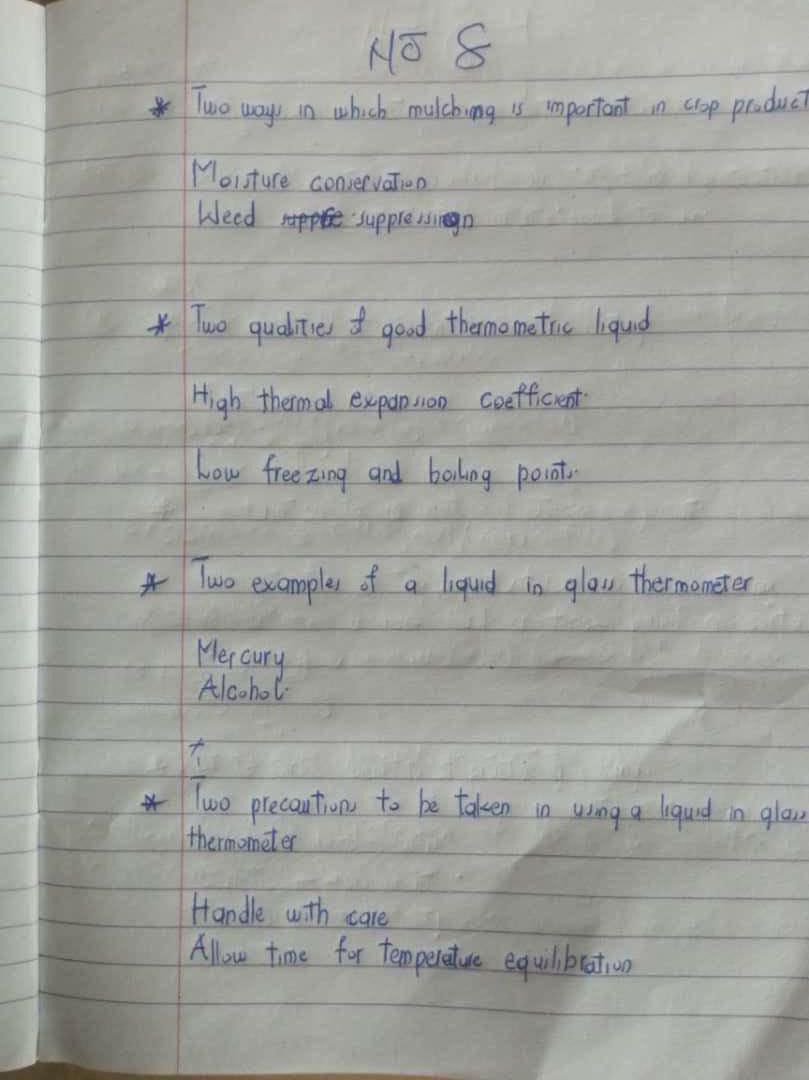 NO 8
* Two ways in which mulching is important in crop product
Moisture conservation
Weed suppression
* Two qualities of good thermometric liquid
High thermal expansion coefficient.
Low freezing and boiling points.
* Two examples of a liquid in glass thermometer
Mercury
Alcohol.
* Two precautions to be taken in using a liquid in glass
thermometer
Handle with care
Allow time for temperature equilibration